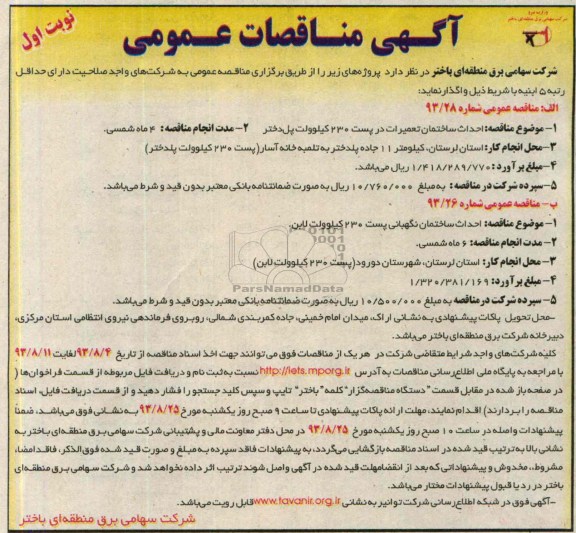 وزارت نیرو
شرکت سهامی برق منطقه‌ای باختر
نوبت اول
آگهی مناقصات عمومی
شرکت سهامی برق منطقه‌ای باختر در نظر دارد پروژه‌های زیر را از طریق برگزاری مناقصه عمومی به شرکت‌های واجد صلاحیت دارای حداقل
رتبه ۵ ابنیه با شریط ذیل واگذار نماید:
الف: مناقصه عمومی شماره ۹۳/۲۸
۱- موضوع مناقصه: احداث ساختمان تعمیرات در پست ۲۳۰ کیلوولت پل‌دختر ۲- مدت انجام مناقصه: ۴ ماه شمسی.
۳- محل انجام کار: استان لرستان، کیلومتر ۱۱ جاده پلدختر به تلمبه خانه آسار (پست ۲۳۰ کیلوولت پلدختر)
۴- مبلغ برآورد: ۱/۴۱۸/۲۸۹/۷۷۰ ریال می‌باشد.
۵- سپرده شرکت در مناقصه: به مبلغ ۱۰/۷۶۰/۰۰۰ ریال به صورت ضمانتنامه بانکی معتبر بدون قید و شرط می‌باشد.
ب- مناقصه عمومی شماره ۹۳/۲۶
۱- موضوع مناقصه: احداث ساختمان نگهبانی پست ۲۳۰ کیلوولت لاین
۲- مدت انجام مناقصه: ۶ ماه شمسی.
۳- محل انجام کار: استان لرستان، شهرستان دورود (پست ۲۳۰ کیلوولت لاین)
۴- مبلغ برآورد: ۱/۳۲۰/۳۸۱/۱۶۹ ریال
ParsNamadData
۵- سپرده شرکت در مناقصه به مبلغ ۱۰/۵۰۰/۰۰۰ ریال به صورت ضمانتنامه بانکی معتبر بدون قید و شرط می‌باشد.
-محل تحویل پاکات پیشنهادی به نشانی اراک، میدان امام خمینی، جاده کمربندی شمالی، روبروی فرماندهی نیروی انتظامی استان مرکزی،
دبیرخانه شرکت برق منطقه‌ای باختر می‌باشد.
کلیه شرکت‌های واجد شرایط متقاضی شرکت در هر یک از مناقصات فوق می‌توانند جهت اخذ اسناد مناقصه از تاریخ ۹۳/۸/۴ لغایت ۹۳/۸/۱۱
با مراجعه به پایگاه ملی اطلاع‌رسانی مناقصات به آدرس http://iets.mporg.ir نسبت به ثبت نام و دریافت فایل مربوطه از قسمت فراخوان‌ها (
در صفحه باز شده در مقابل قسمت "دستگاه مناقصه‌گزار" کلمه "باختر" تایپ و سپس کلید جستجو را فشار دهید و از قسمت دریافت فایل، اسناد
مناقصه را بردارند) اقدام نمایند، مهلت ارائه پاکات پیشنهادی تا ساعت ۹ صبح روز یکشنبه مورخ ۹۳/۸/۲۵ به نشانی فوق می‌باشد، ضمناً
پیشنهادات واصله در ساعت ۱۰ صبح روز یکشنبه مورخ ۹۳/۸/۲۵ در محل دفتر معاونت مالی و پشتیبانی شرکت سهامی برق منطقه‌ای باختر به
نشانی بالا به ترتیب قید شده در اسناد مناقصه بازگشایی می‌گردد، به پیشنهادات فاقد سپرده به مبلغ و صورت قید شده فوق الذکر، فاقد امضا،
مشروط، مخدوش و پیشنهاداتی که بعد از انقضا مهلت قید شده در آگهی واصل شوند ترتیب اثر داده نخواهد شد و شرکت سهامی برق منطقه‌ای
باختر در رد یا قبول پیشنهادات مختار می‌باشد.
-آگهی فوق در شبکه اطلاع‌رسانی شرکت توانیر به نشانی www.tavanir.org.ir قابل رویت می‌باشد.
شرکت سهامی برق منطقه‌ای باختر